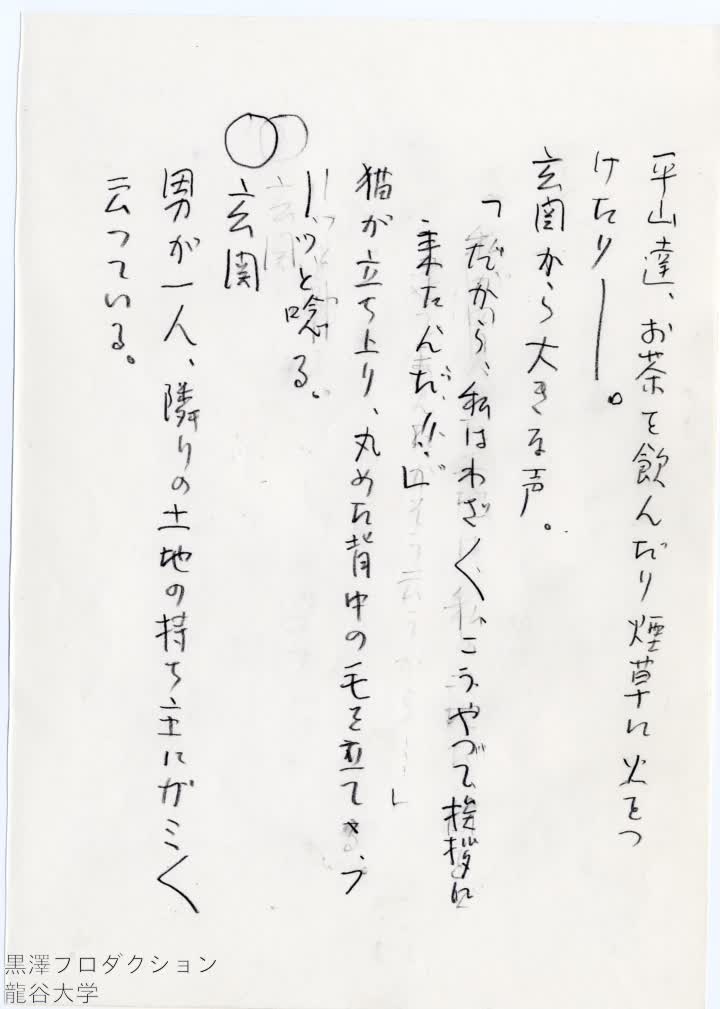 平山達、お茶を飲んだり煙草に火をつ
けたり――。
玄関から大きな声。
「だから、私はわざ〱、こうやって挨拶に
来たんだ!!」
猫が立ち上り、丸めた背中の毛を立てゝ、フ
ーッと唸る。
○玄関
男が一人、隣りの土地の持ち主にガミ〱
云っている。
黒澤プロダクション
龍谷大学